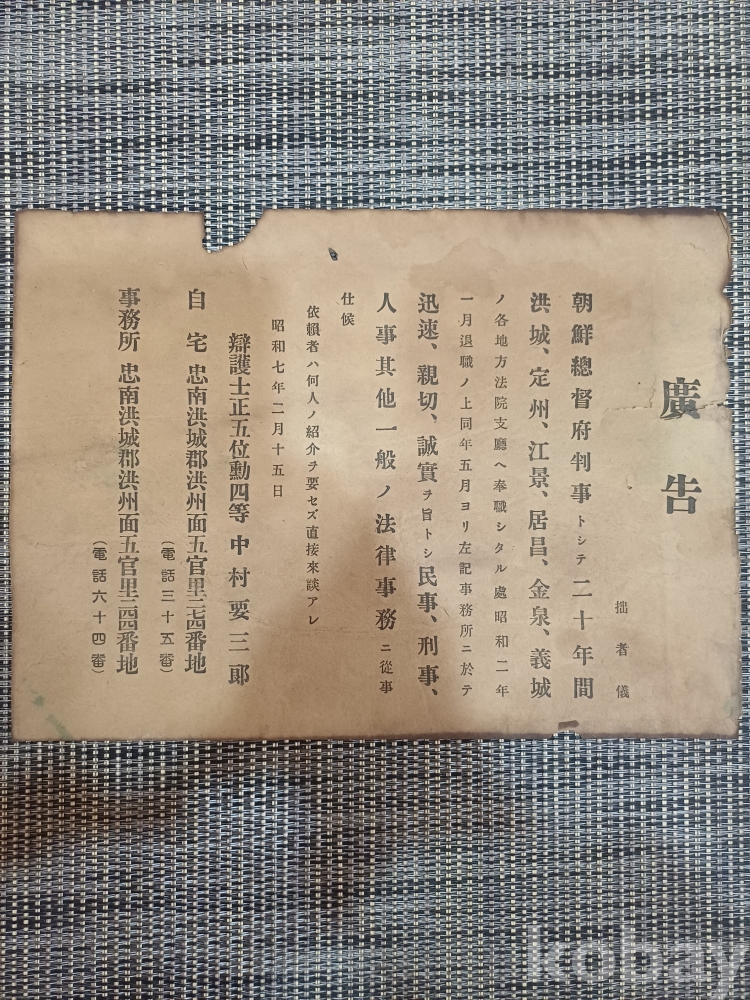 廣告
拙者儀
朝鮮總督府判事トシテ二十年間
洪城、定州、江景、居昌、金泉、義城
ノ各地方法院支廳ヘ奉職シタル處昭和二年
一月退職ノ上同年五月ヨリ左記事務所ニ於テ
迅速、親切、誠實ヲ旨トシ民事、刑事、
人事其他一般ノ法律事務ニ從事
仕候
依賴者ハ何人ノ紹介ヲ要セズ直接來談アレ
昭和七年二月十五日
辯護士正五位勳四等中村要三郞
自宅 忠南洪城郡洪州面五官里三七四番地
(電話三十五番)
事務所 忠南洪城郡洪州面五官里三四四番地
(電話六十四番)
kobay